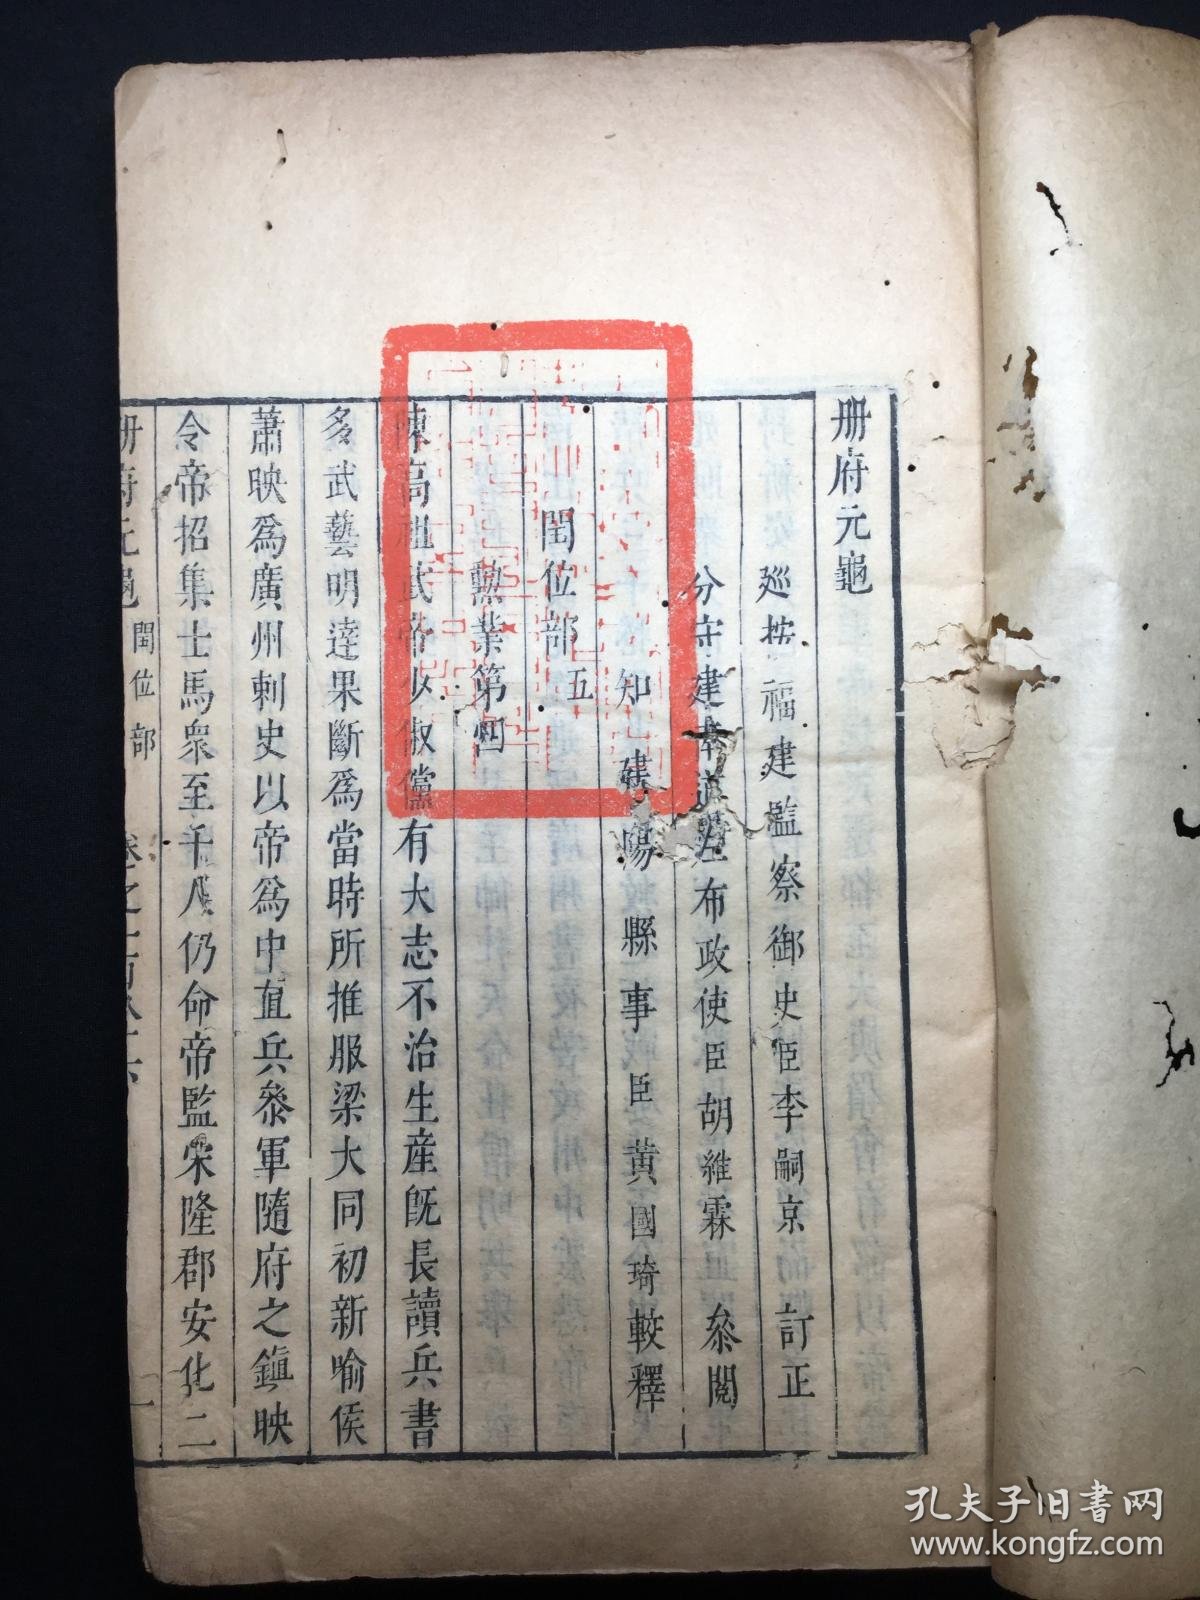 册府元龜
廵按福建監察御史臣李嗣京訂正
分守建南道左布政使臣胡維霖叅閱
知建陽縣事臣黃國琦較釋
閏位部五
勲業第四
陳高祖武帝少俶儻有大志不治生產旣長讀兵書
多武藝明逹果斷爲當時所推服梁大同初新喻侯
蕭映爲廣州刺史以帝爲中直兵叅軍隨府之鎭映
令帝招集士馬衆至千人仍命帝監宋隆郡安化二
册府元龜 閏位部 卷之一百八十六 一
孔夫子旧书网
www.kongfz.com